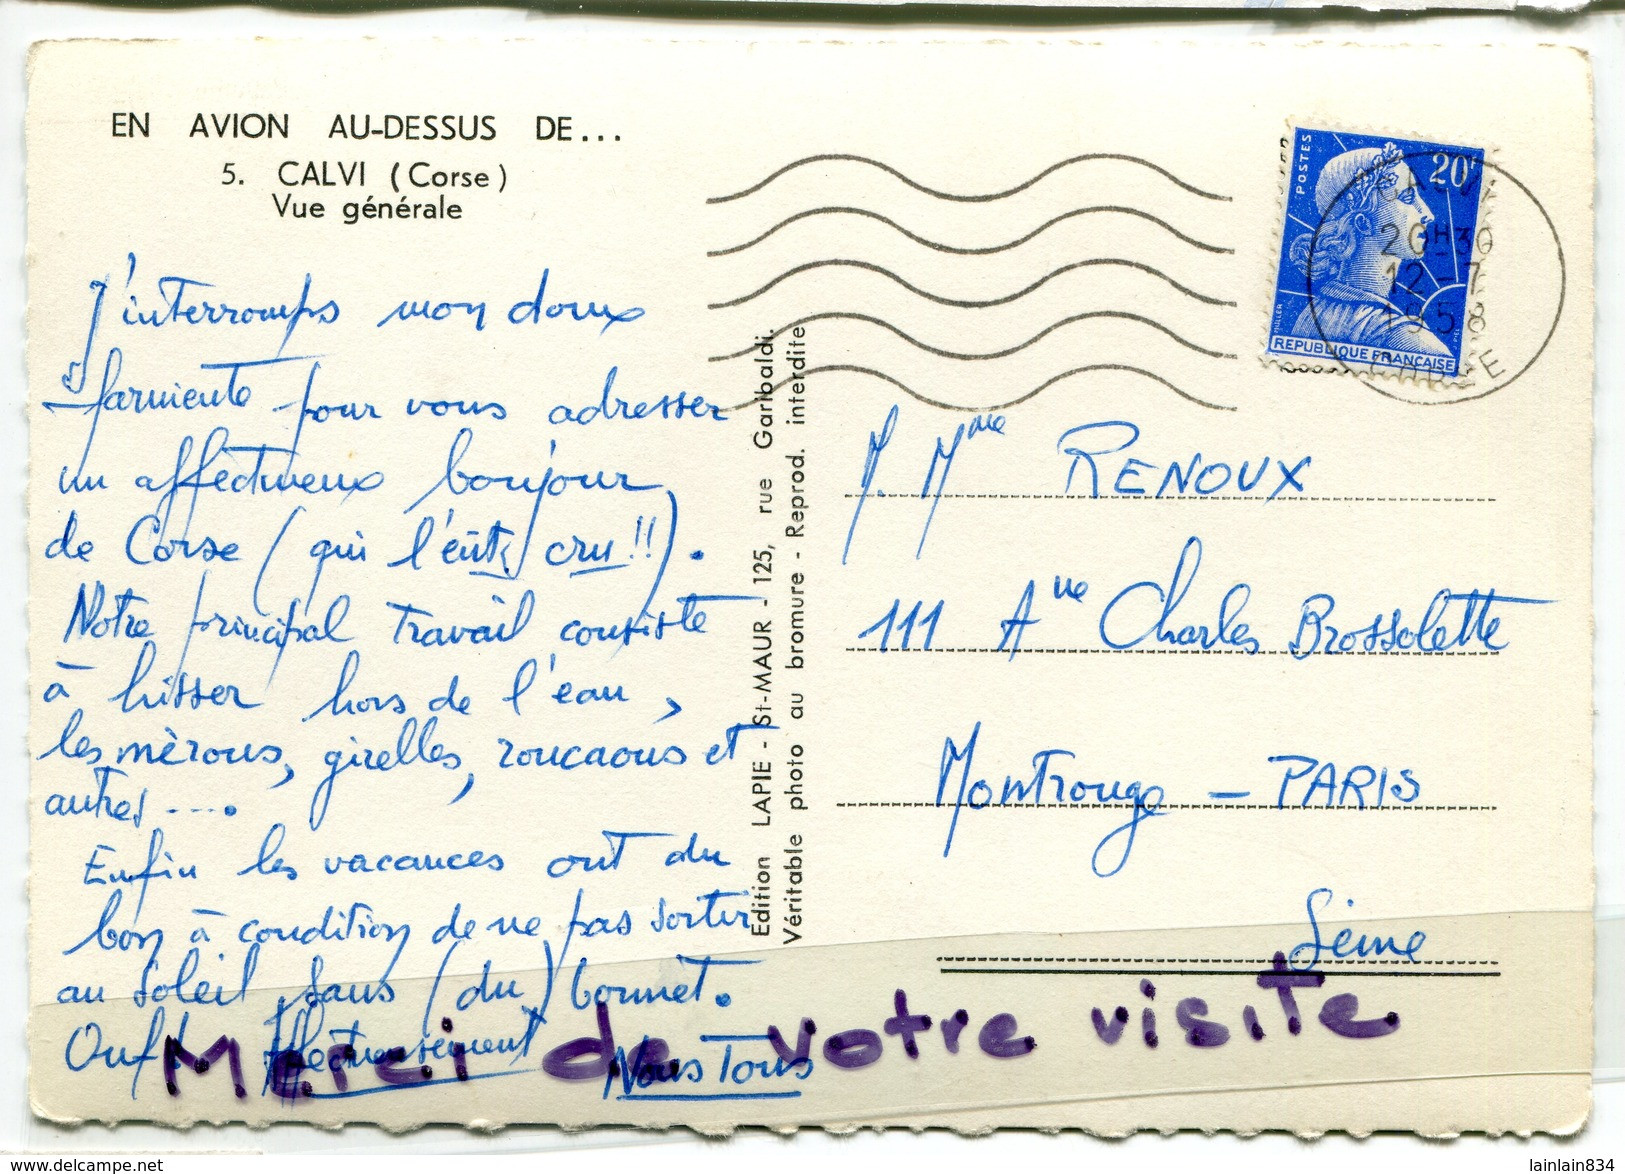 EN AVION AU-DESSUS DE...
5. CALVI (Corse)
Vue générale
J'interromps mon doux
farniente pour vous adresser
un affectueux bonjour
de Corse (qui l'eût cru!!).
Notre principal travail consiste
à hisser hors de l'eau,
les mèrous, girelles, roucaous et
autres ....
Enfin les vacances ont du
bon à condition de ne pas sortir
au soleil sans (du) bonnet.
Ouf! Affectueusement
Nous Tous
Edition LAPIE - St-MAUR - 125, rue Garibaldi.
Véritable photo au bromure - Reprod. interdite
POSTES
20F
MULLER
REPUBLIQUE FRANÇAISE
CALVI
20H30
12-7
1958
CORSE
M. Mme RENOUX
111 Ave Charles Brossolette
Montrouge - PARIS
Seine
Merci de votre visite
delcampe.net
lainlain834